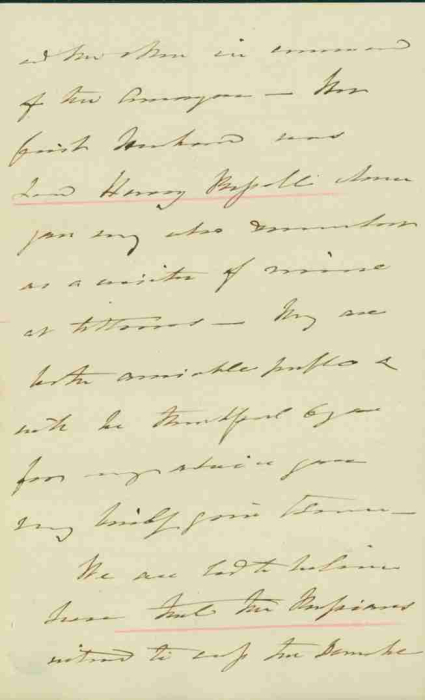 in command
of the — Her
first Husband was
Lord Henry Russell whom
you may also remember
as a visitor of mine
at — They are
both amiable people &
will be thankful to you
for any advice you
may kindly give them —
We are led to believe
here that the Russians
intend to cross the Danube